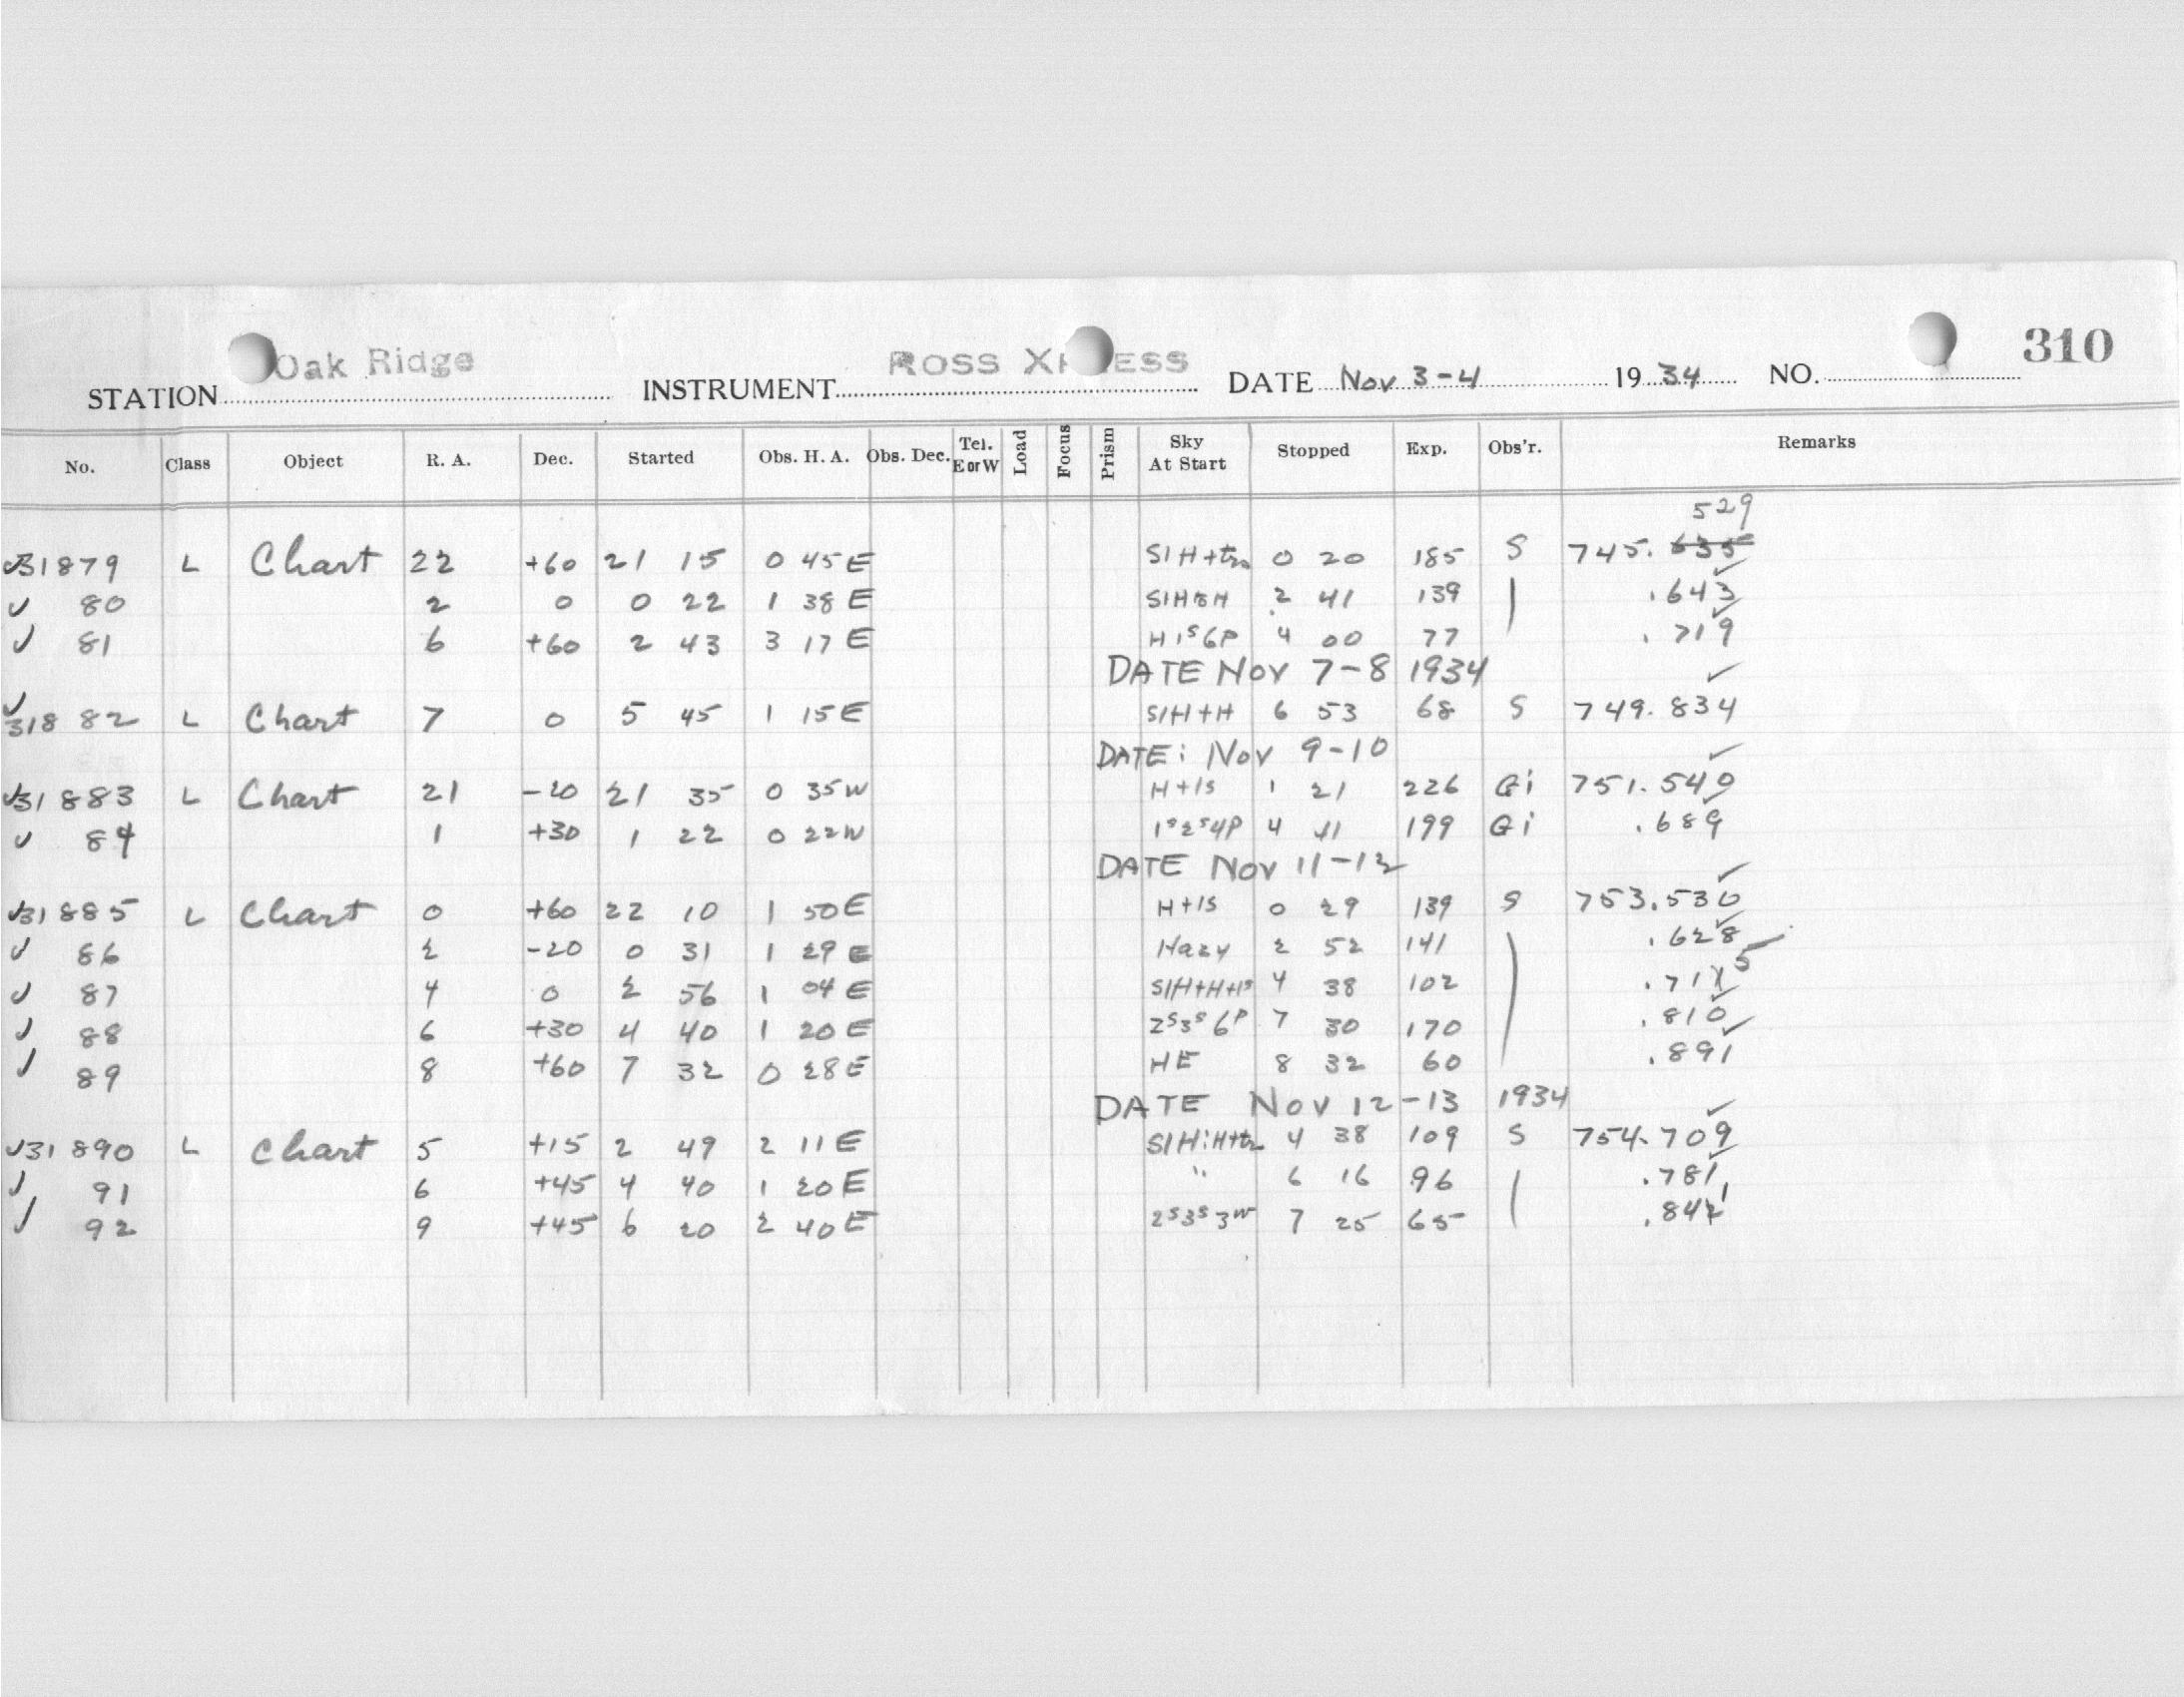 310
Oak Ridge ROSS X ESS
STATION INSTRUMENT DATE Nov 3-4 19 34 NO.
No. Class Object R. A. Dec. Started Obs. H. A. Obs. Dec. Tel. E or W Load Focus Prism Sky At Start Stopped Exp. Obs'r. Remarks
529
31879 L Chart 22 +60 21 15 0 45 E SlH+tr 0 20 185 S 745. 635
80 2 0 0 22 1 38 E 2 41 139 .643
81 6 +60 2 43 3 17 E H 1s 6P 4 00 77 .719
DATE Nov 7-8 1934
31882 L Chart 7 0 5 45 1 15 E SlH+H 6 53 68 S 749.834
DATE: Nov 9-10
31883 L Chart 21 -20 21 35 0 35 W H+1s 1 21 226 Gi 751.549
84 1 +30 1 22 0 22 W 1s2s4P 4 41 199 Gi .689
DATE Nov 11-12
31885 L Chart 0 +60 22 10 1 50 E H+1s 0 29 139 S 753.530
86 2 -20 0 31 1 29 E Hazy 2 52 141 .628
87 4 0 2 56 1 04 E SlH+H+1s 4 38 102 .715
88 6 +30 4 40 1 20 E 2s3s6P 7 30 170 .810
89 8 +60 7 32 0 28 E HE 8 32 60 .891
DATE Nov 12-13 1934
31890 L Chart 5 +15 2 49 2 11 E SlH:H+tr 4 38 109 S 754.709
91 6 +45 4 40 1 20 E " 6 16 96 .781
92 9 +45 6 20 2 40 E 2s3s3w 7 25 65 .841